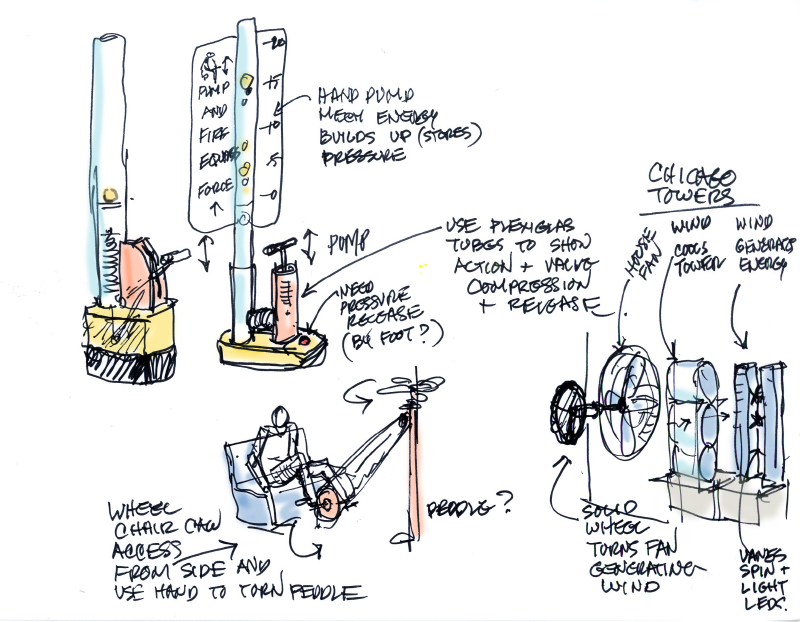 PUMP
AND
FIRE
EQUALS
FORCE
20
15
10
5
0
HAND PUMP
MECH ENERGY
BUILDS UP (STORES)
PRESSURE
PUMP
NEED
PRESSURE
RELEASE
(BY FOOT?)
USE PLEXIGLAS
TUBES TO SHOW
ACTION + VALVE
COMPRESSION
+ RELEASE
CHICAGO
TOWERS
HOUSE
FAN
WIND
COOLS
TOWER
WIND
GENERATES
ENERGY
WHEEL
CHAIR CAN
ACCESS
FROM SIDE AND
USE HAND TO TURN PEDDLE
PEDDLE?
SOLID
WHEEL
TURNS FAN
GENERATING
WIND
VANES
SPIN +
LIGHT
LEDS.